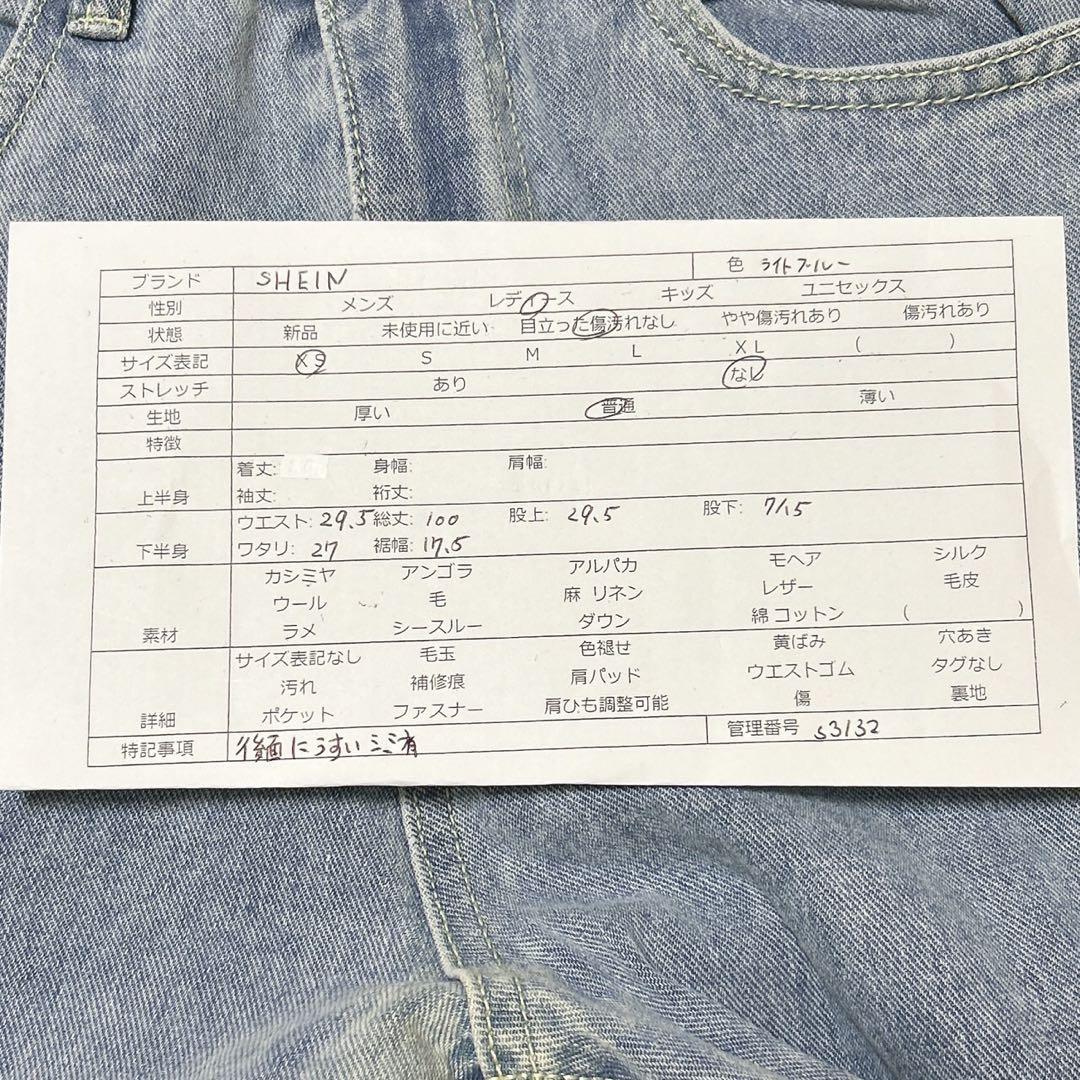 ブランド SHEIN 色 ライトブルー
性別 メンズ レディース キッズ ユニセックス
状態 新品 未使用に近い 目立った傷汚れなし やや傷汚れあり 傷汚れあり
サイズ表記 XS S M L XL ( )
ストレッチ あり なし
生地 厚い 普通 薄い
特徴
着丈: 身幅: 肩幅:
上半身 袖丈: 裄丈:
ウエスト: 29.5 総丈: 100 股上: 29.5 股下: 71.5
下半身 ワタリ: 27 裾幅: 17.5
カシミヤ アンゴラ アルパカ モヘア シルク
ウール 毛 麻 リネン レザー 毛皮
素材 ラメ シースルー ダウン 綿 コットン ( )
サイズ表記なし 毛玉 色褪せ 黄ばみ 穴あき
汚れ 補修痕 肩パッド ウエストゴム タグなし
詳細 ポケット ファスナー 肩ひも調整可能 傷 裏地
特記事項 後面にうすいシミ有 管理番号 S3132